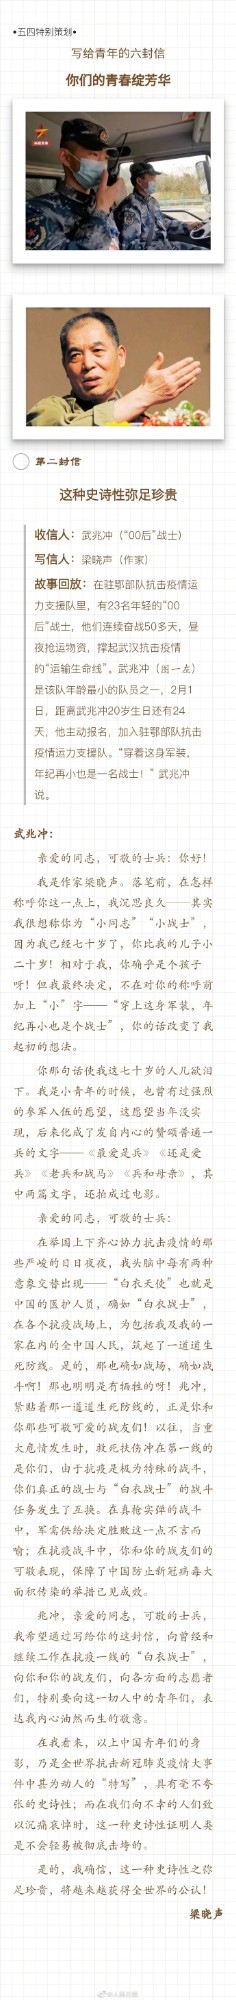 •五四特别策划•
写给青年的六封信
你们的青春绽芳华
第二封信
这种史诗性弥足珍贵
收信人：武兆冲（“00后”战士）
写信人：梁晓声（作家）
故事回放：在驻鄂部队抗击疫情运
力支援队里，有23名年轻的“00
后”战士，他们连续奋战50多天，昼
夜抢运物资，撑起武汉抗击疫情
的“运输生命线”。武兆冲（图一左）
是该队年龄最小的队员之一，2月1
日，距离武兆冲20岁生日还有24
天，他主动报名，加入驻鄂部队抗击
疫情运力支援队。“穿着这身军装，
年纪再小也是一名战士！”武兆冲
说。
武兆冲：
亲爱的同志，可敬的士兵：你好！
我是作家梁晓声。落笔前，在怎样
称呼你这一点上，我沉思良久——其实
我很想称你为“小同志”“小战士”，
因为我已经七十岁了，你比我的儿子小
二十岁！相对于我，你确乎是个孩子
呀！但我最终决定，不在对你的称呼前
加上“小”字——“穿上这身军装，年
纪再小也是个战士”，你的话改变了我
起初的想法。
你那句话使我这七十岁的人几欲泪
下。我是小青年的时候，也曾有过强烈
的参军入伍的愿望，这愿望当年没实
现，后来化成了发自内心的赞颂普通一
兵的文字——《最爱是兵》《还是爱
兵》《老兵和战马》《兵和母亲》，其
中两篇文字，还拍成过电影。
亲爱的同志，可敬的士兵：
在举国上下齐心协力抗击疫情的那
些严峻的日日夜夜，我头脑中每有两种
意象交替出现——“白衣天使”也就是
中国的医护人员，确如“白衣战士”，
在各个抗疫战场上，为包括我及我的一
家在内的全中国人民，筑起了一道道生
死防线。是的，那也确如战场，确如战
斗啊！那也明明是有牺牲的呀！兆冲，
紧贴着那一道道生死防线的，正是你和
你那些可敬可爱的战友们！以往，当重
大危情发生时，救死扶伤冲在第一线的
是你们，由于抗疫是极为特殊的战斗，
你们真正的战士与“白衣战士”的战斗
任务发生了互换。在真枪实弹的战斗
中，军需供给决定胜败这一点不言而
喻；在抗疫战斗中，你和你的战友们的
可敬表现，保障了中国防止新冠病毒大
面积传染的举措已见成效。
兆冲，亲爱的同志，可敬的士兵，
我希望通过写给你的这封信，向曾经和
继续工作在抗疫一线的“白衣战士”，
向你和你的战友们，向各方面的志愿者
们，特别要向这一切人中的青年们，表
达我内心油然而生的敬意。
在我看来，以上中国青年们的身
影，乃是全世界抗击新冠肺炎疫情大事
件中甚为动人的“特写”，具有毫不夸
张的史诗性；而在我们向不幸的人们致
以沉痛哀悼时，这一种史诗性证明人类
是不会轻易被彻底击垮的。
是的，我确信，这一种史诗性之弥
足珍贵，将越来越获得全世界的公认！
梁晓声
@人民日报